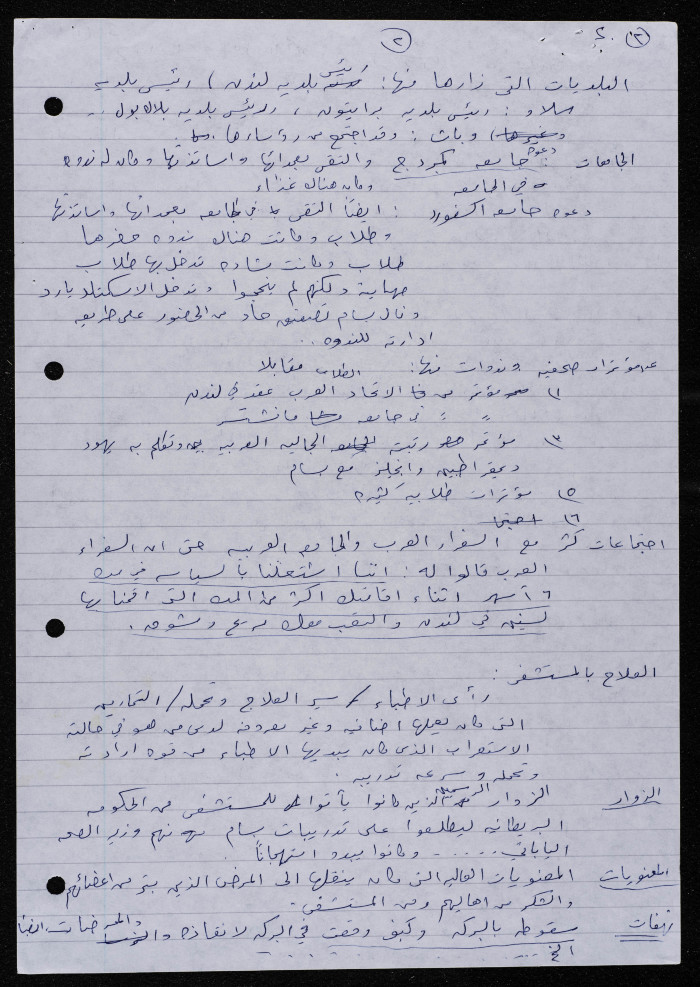 (٢)
(٢)
البلديات التي زارها منها: رئيس بلدية لندن / رئيس بلدية
سلاو : رئيس بلدية برايتون ، ورئيس بلدية بلاكبول ..
وغيرها وباث : وقد اجتمع من رؤساءها
الجامعات : دعوة جامعة كمبردج والتقى بعمدائها واساتذتها وكان له ندوة
في الجامعة وكان هناك غذاء
دعوة جامعة اكسفورد : ايضاً التقى في الجامعة بعمدائها واساتذتها
وطلاب وكانت هناك ندوة حضرها
طلاب وكانت مشادة تدخل بها طلاب
صهاينة ولكنهم لم ينجحوا وتدخل الاسكتلند يارد
ونال بسام تصفيق حاد من الحضور على طريقة
ادارته للندوة ..
مؤتمرات صحفية وندوات منها: الطلاب مقابلا
١) مؤتمر من الاتحاد العرب عقد في لندن
" " : في جامعة مانشستر
٣) مؤتمر رتبته الجالية العربية وتكلم به يهود
ديمقراطيين وانجليز مع بسام
٥) مؤتمرات طلابية كثيرة
٦) اجتما
اجتماعات كثر مع السفراء العرب والجامعة العربية حتى ان السفراء
العرب قالوا له : اننا اشتغلنا بالسياسة في مدة
٦ أشهر اثناء اقامتك اكثر من المدة التي اقمناها
لسنين في لندن والتعب معك مريح ومشوق .
العلاج بالمستشفى :
رأي الاطباء / سير العلاج وتحمله / التمارين
التي كان يعملها اضافية وغير معروفة لدى من هو في حالته
الاستغراب الذي كان يبديها الاطباء من قوة ارادته
وتحمله وسرعة تدريبه .
الزوار الزوار الرسميين الذين كانوا يأتوا للمستشفى من الحكومة
البريطانية ليطلعوا على تدريبات بسام منهم وزير الصحة
الياباني ...... وكانوا يبدو ابتهاجاً
المعنويات المعنويات العالية التي كان ينقلها الى المرضى الذين بتر من اعضائهم
والشكر من اهاليهم ومن المستشفى .
نهفات سقوطه بالبركة وكيف وقعت في البركة لانقاذه
الخ ....